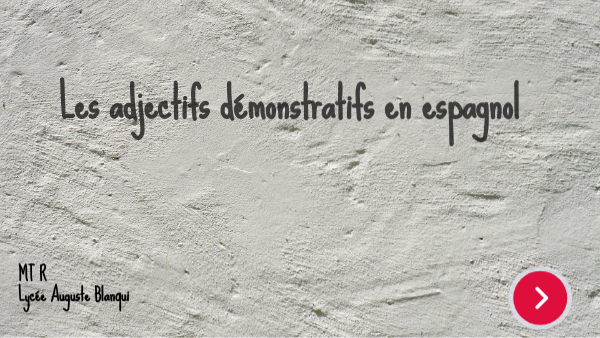 Les adjectifs démonstratifs en espagnol
MT R
Lycée Auguste Blanqui